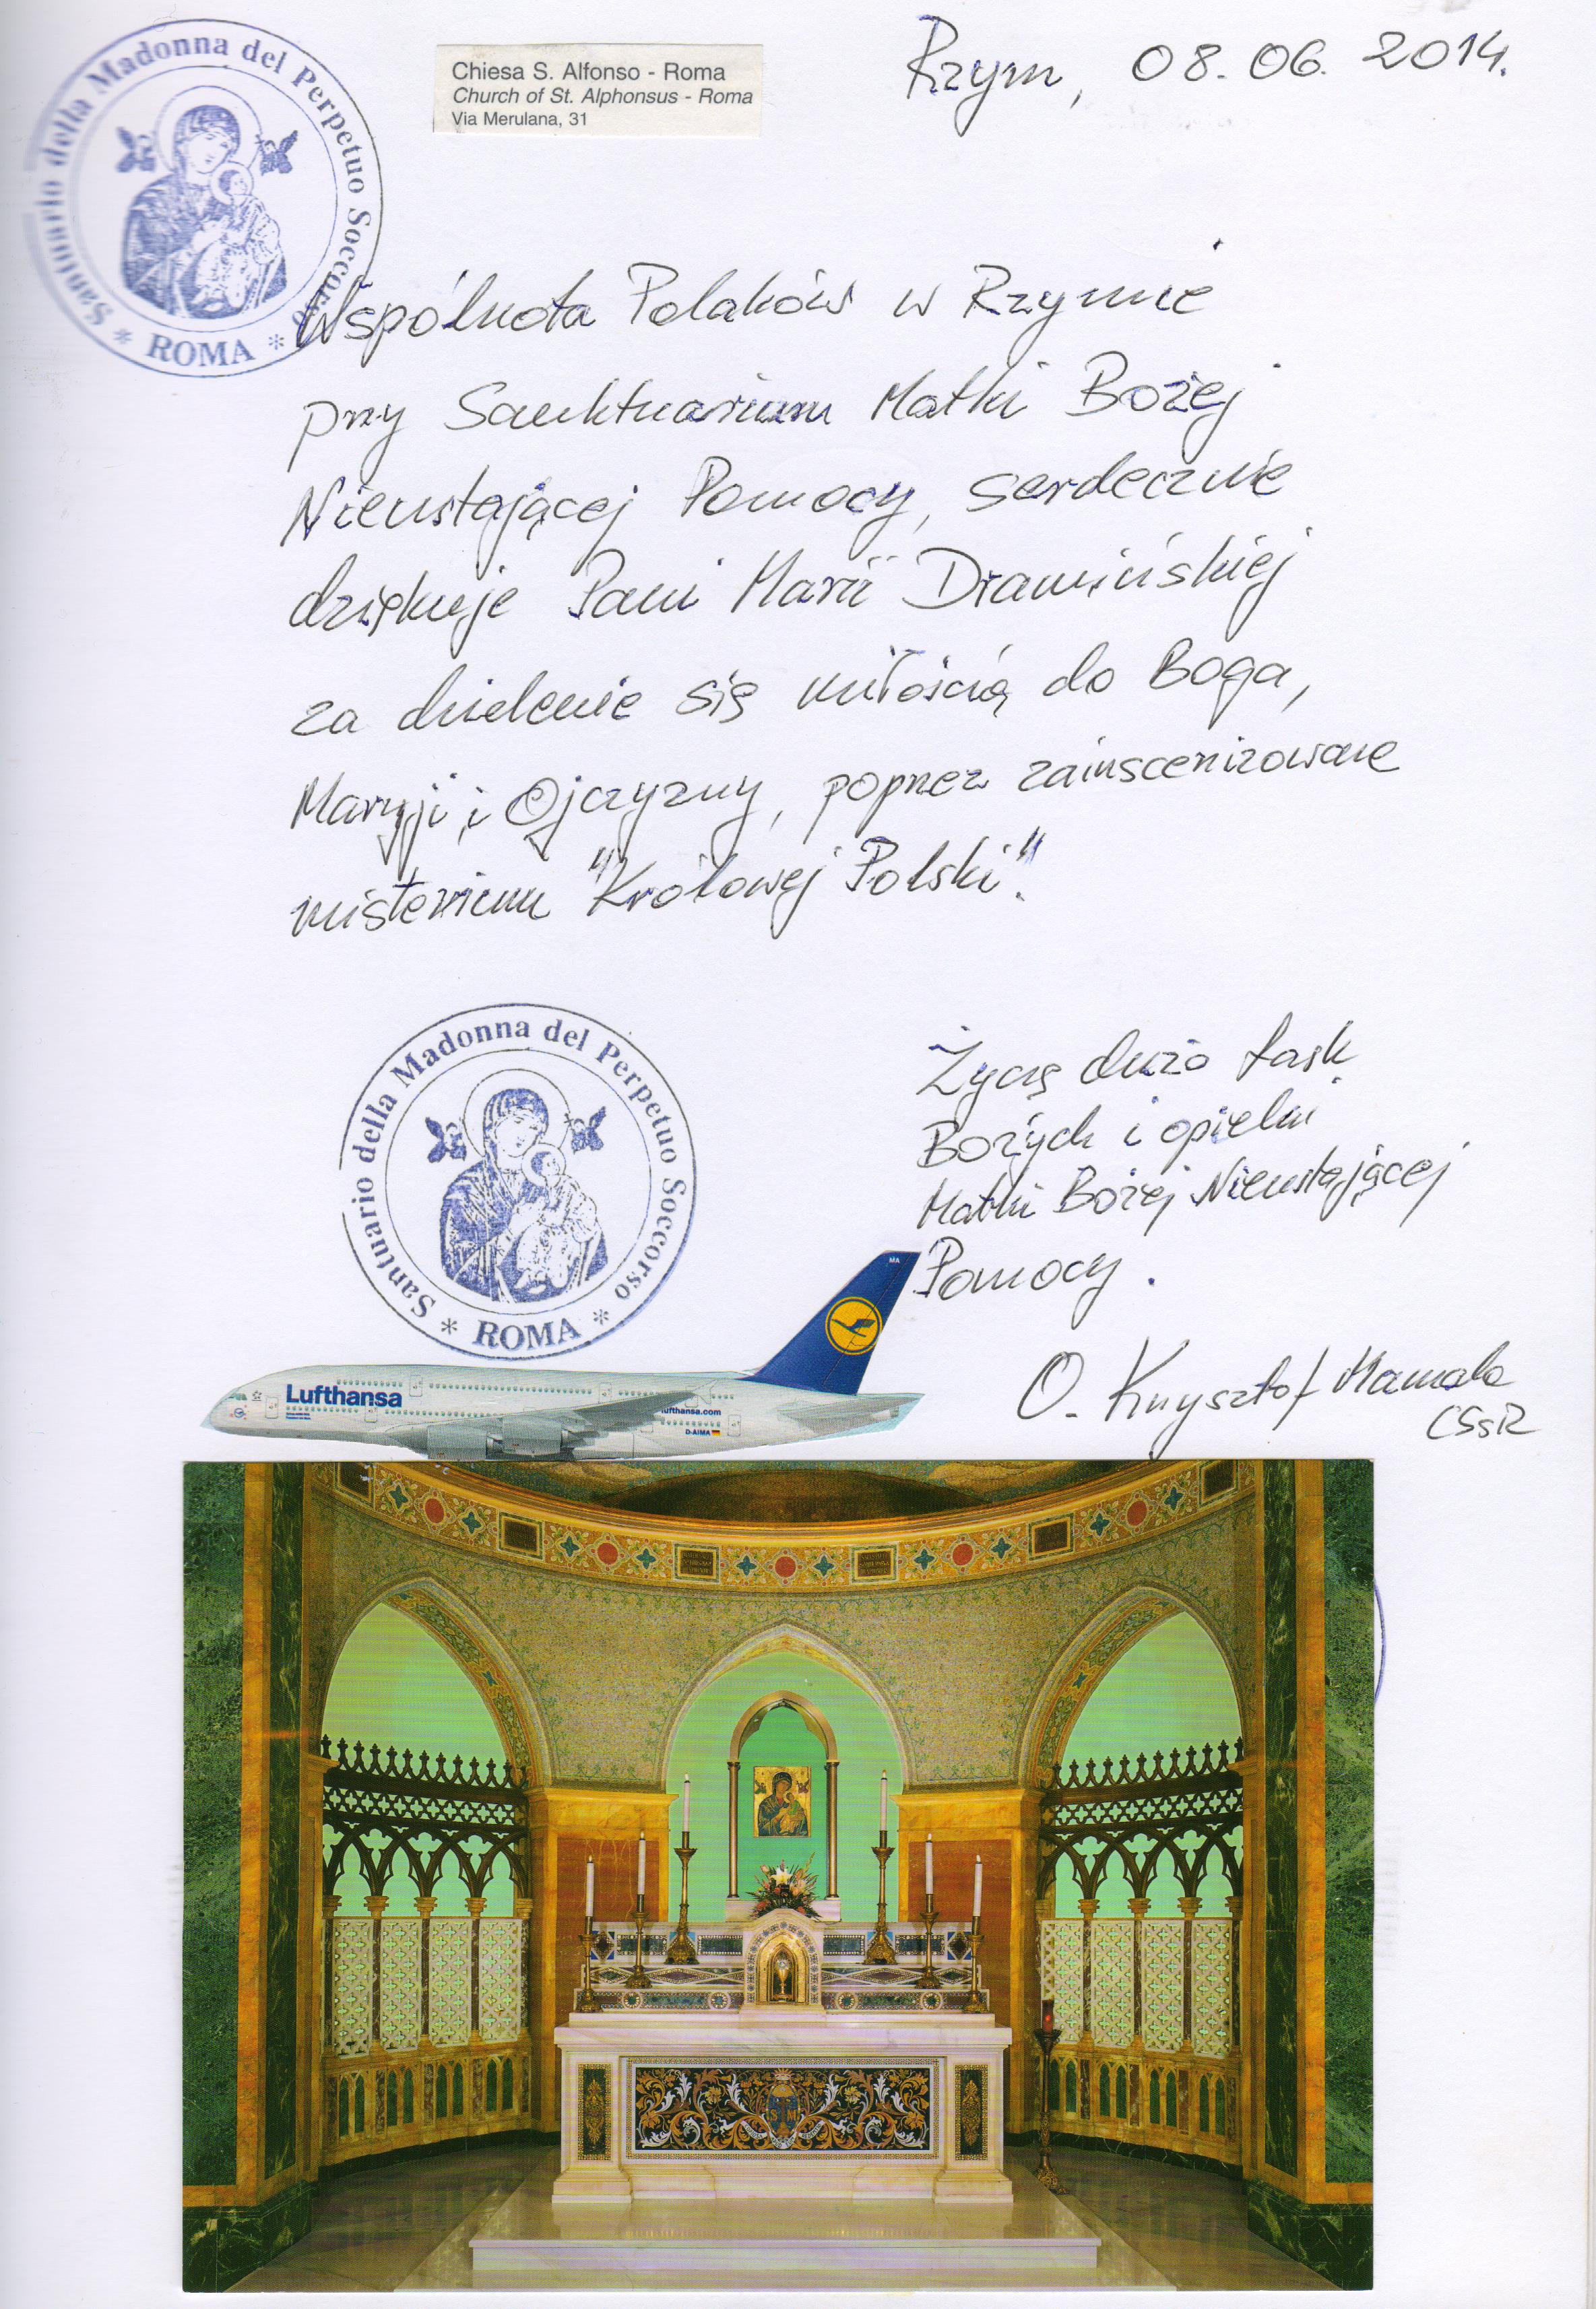 Santuario della Madonna del Perpetuo Soccorso
* ROMA *
Chiesa S. Alfonso - Roma
Church of St. Alphonsus - Roma
Via Merulana, 31
Rzym, 08.06.2014.
Wspólnota Polaków w Rzymie
przy Sanktuarium Matki Bożej
Nieustającej Pomocy, serdecznie
dziękuje Pani Marii Dramińskiej
za dzielenie się miłością do Boga,
Maryji i Ojczyzny, poprzez zainscenizowane
misterium "Królowej Polski".
Santuario della Madonna del Perpetuo Soccorso
* ROMA *
Życzę dużo łask
Bożych i opieki
Matki Bożej Nieustającej
Pomocy.
O. Krzysztof Mamala
CSsR
MA
Lufthansa
lufthansa.com
D-AIMA